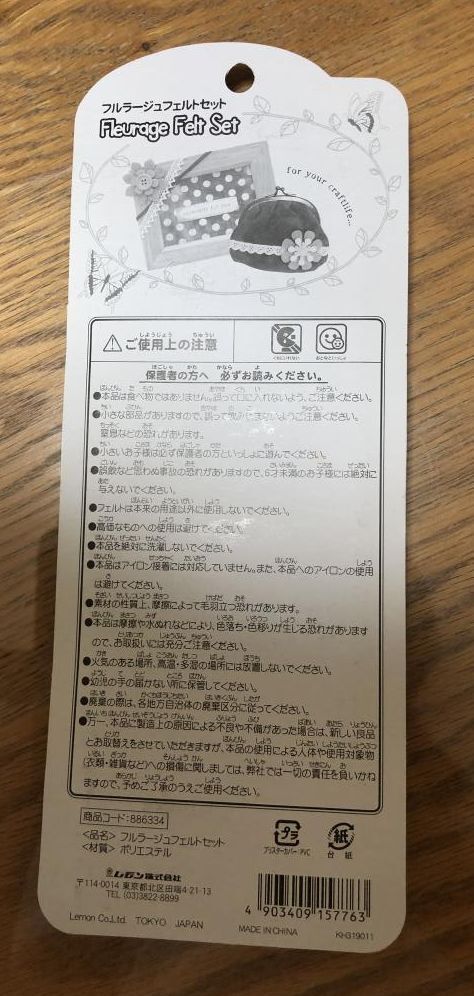 フルラージュフェルトセット
Fleurage Felt Set
for your craftlife...
ご使用上の注意
くちにいれない
おとなといっしょ
保護者の方へ 必ずお読みください。
●本品は食べ物ではありません。誤って口に入れないよう、ご注意ください。
●小さな部品がありますので、誤って飲み込まないようご注意ください。
窒息などの恐れがあります。
●小さいお子様は必ず保護者の方といっしょに遊んでください。
●誤飲など思わぬ事故の恐れがありますので、6才未満のお子様には絶対に
与えないでください。
●フェルトは本来の用途以外に使用しないでください。
●高価なものへの使用は避けてください。
●本品を絶対に洗濯しないでください。
●本品はアイロン接着には対応していません。また、本品へのアイロンの使用
は避けてください。
●素材の性質上、摩擦によって毛羽立つ恐れがあります。
●本品は摩擦や水ぬれなどにより、色落ち・色移りが生じる恐れがあります
ので、お取扱いには充分ご注意ください。
●火気のある場所、高温・多湿の場所には放置しないでください。
●幼児の手の届かない所に保管してください。
●廃棄の際は、各地方自治体の廃棄区分に従ってください。
●万一、本品に製造上の原因による不良や不備があった場合は、新しい良品
とお取替えをさせていただきますが、本品の使用による人体や使用対象物
(衣類・雑貨など)への損傷に関しましては、弊社では一切の責任を負いかね
ますので、予めご了承のうえご使用ください。
商品コード:886334
<品名> フルラージュフェルトセット
<材質> ポリエステル
プラ
ブリスターカバー:PVC
紙
台 紙
レモン株式会社
〒114-0014 東京都北区田端4-21-13
TEL (03)3822-8899
Lemon Co.,Ltd. TOKYO JAPAN
4 903409 157763
MADE IN CHINA
KHG19011